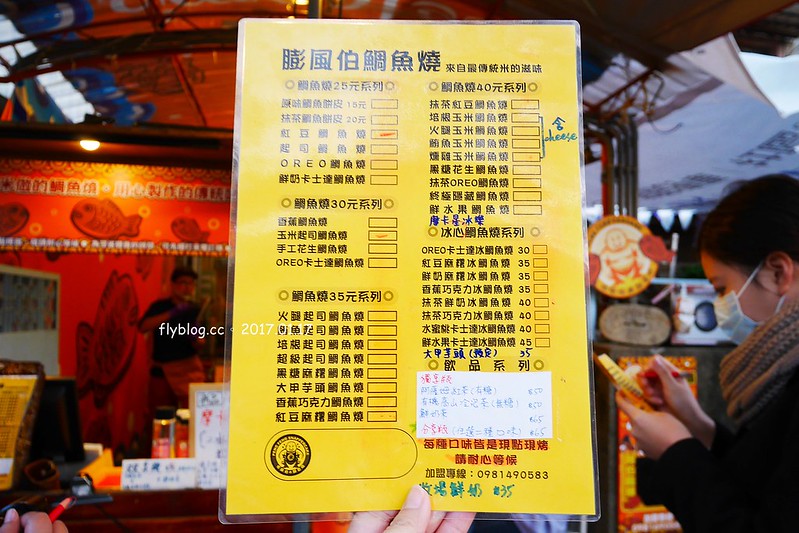 膨風伯鯛魚燒 來自最傳統米的滋味
鯛魚燒25元系列
原味鯛魚餅皮 15元
抹茶鯛魚餅皮 20元
紅豆鯛魚燒
起司鯛魚燒
OREO鯛魚燒
鮮奶卡士達鯛魚燒
鯛魚燒30元系列
香蕉鯛魚燒
玉米起司鯛魚燒
手工花生鯛魚燒
OREO卡士達鯛魚燒
鯛魚燒35元系列
火腿起司鯛魚燒
鮪魚起司鯛魚燒
培根起司鯛魚燒
超級起司鯛魚燒
黑糖麻糬鯛魚燒
大甲芋頭鯛魚燒
香蕉巧克力鯛魚燒
紅豆麻糬鯛魚燒
鯛魚燒40元系列
抹茶紅豆鯛魚燒
培根玉米鯛魚燒
火腿玉米鯛魚燒
鮪魚玉米鯛魚燒
燻雞玉米鯛魚燒
含
cheese
黑糖花生鯛魚燒
抹茶OREO鯛魚燒
終極隱藏鯛魚燒
鮮水果鯛魚燒
摩卡星冰樂
冰心鯛魚燒系列
OREO卡士達冰鯛魚燒 30
紅豆麻糬冰鯛魚燒 35
鮮奶麻糬冰鯛魚燒 35
香蕉巧克力冰鯛魚燒 35
抹茶鮮奶冰鯛魚燒 40
抹茶巧克力冰鯛魚燒 40
水蜜桃卡士達冰鯛魚燒 40
鮮水果卡士達冰鯛魚燒 45
大甲芋頭 35
飲品系列
每種口味皆是現點現烤
請耐心等候
加盟專線：0981490583
牧場鮮奶 35
flyblog.cc。2017